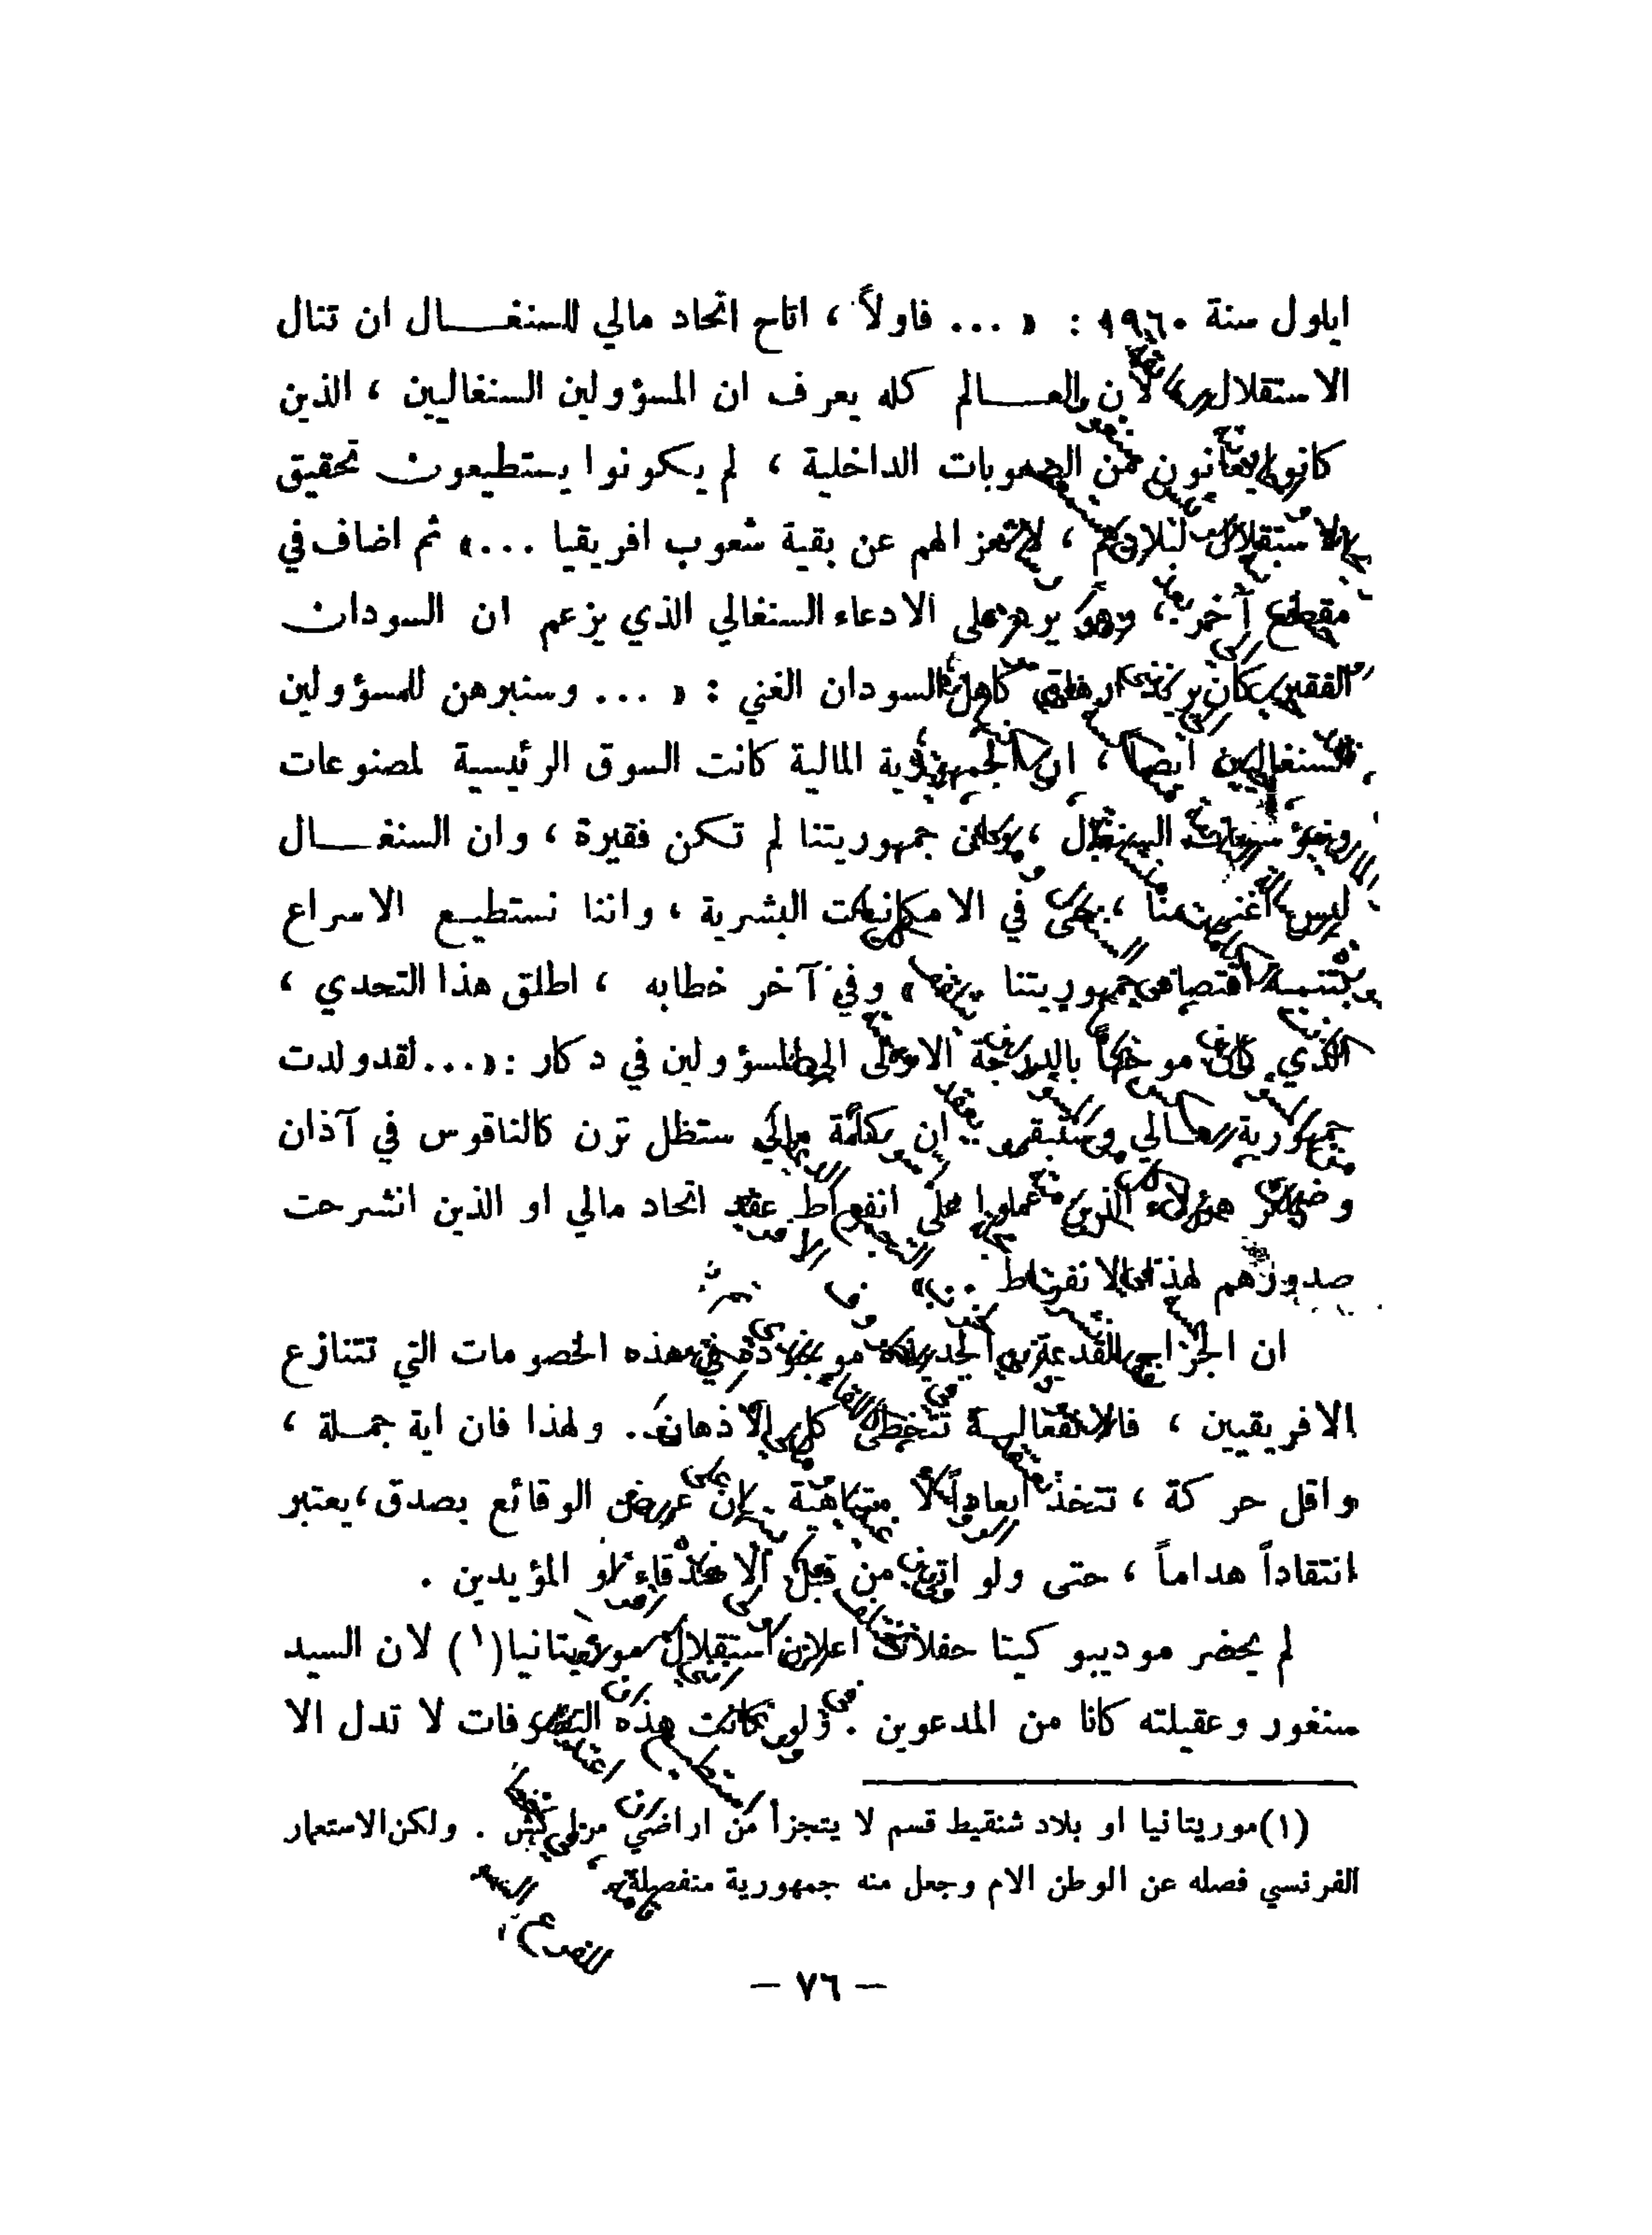 ايلول سنة ١٩٦٠ : « ... فاولاً ، اتاح اتحاد مالي للسنغــــال ان تنال
الاستقلال ، لأن العــــالم كله يعرف ان المسؤولين السنغاليين ، الذين
كانوا يعانون من الصعوبات الداخلية ، لم يكونوا يستطيعون تحقيق
الاستقلال لبلادهم ، لانعزالهم عن بقية شعوب افريقيا ...» ثم اضاف في
مقطع آخر ، وهو يرد على الادعاء السنغالي الذي يزعم ان السودان
الفقير كان يريد ارهاق كاهل السودان الغني : « ... وسنبرهن للمسؤولين
السنغاليين ايضاً ، ان الجمهورية المالية كانت السوق الرئيسية لمصنوعات
ومؤسسات السنغال ، وان جمهوريتنا لم تكن فقيرة ، وان السنغــــال
ليس اغنى منا ، حتى في الامكانيات البشرية ، واننا نستطيــع الاسراع
بتنمية اقتصاد جمهوريتنا ... » وفي آخر خطابه ، اطلق هذا التحدي ،
الذي كان موجهاً بالدرجة الاولى الى المسؤولين في دكار : «... لقد ولدت
جمهورية مــالي وستبقى .. ان كلمة مالي ستظل ترن كالناقوس في آذان
وضمائر هؤلاء الذين عملوا على انفراط عقد اتحاد مالي او الذين انشرحت
صدورهم لهذا الانفراط ... »
ان الحزازات القديمة والجديدة موجودة في هذه الخصومات التي تتنازع
الافريقيين ، فالانفعاليــة تتخطى كل الاذهان . ولهذا فان اية جمــلة ،
واقل حركة ، تتخذ ابعاداً لا متناهية . ان عرض الوقائع بصدق ، يعتبر
انتقاداً هداماً ، حتى ولو اتى من قبل الاصدقاء او المؤيدين .
لم يحضر موديبو كيتا حفلات اعلان استقلال موريتانيا(١) لان السيد
سنغور وعقيلته كانا من المدعوين . ولو كانت هذه التصرفات لا تدل الا
(١) موريتانيا او بلاد شنقيط قسم لا يتجزأ من اراضي مراكش . ولكن الاستعمار
الفرنسي فصله عن الوطن الام وجعل منه جمهورية منفصلة .
— ٧٦ —